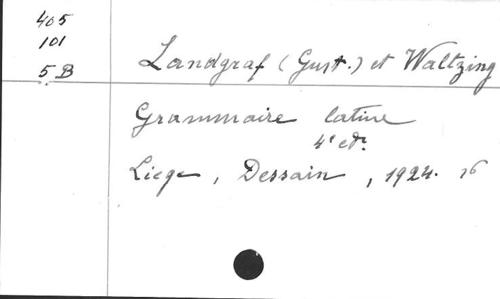 405
101
5 B
Landgraf (Gust.) et Waltzing
Grammaire latine
4e ed.
Liege, Dessain, 1924. 16